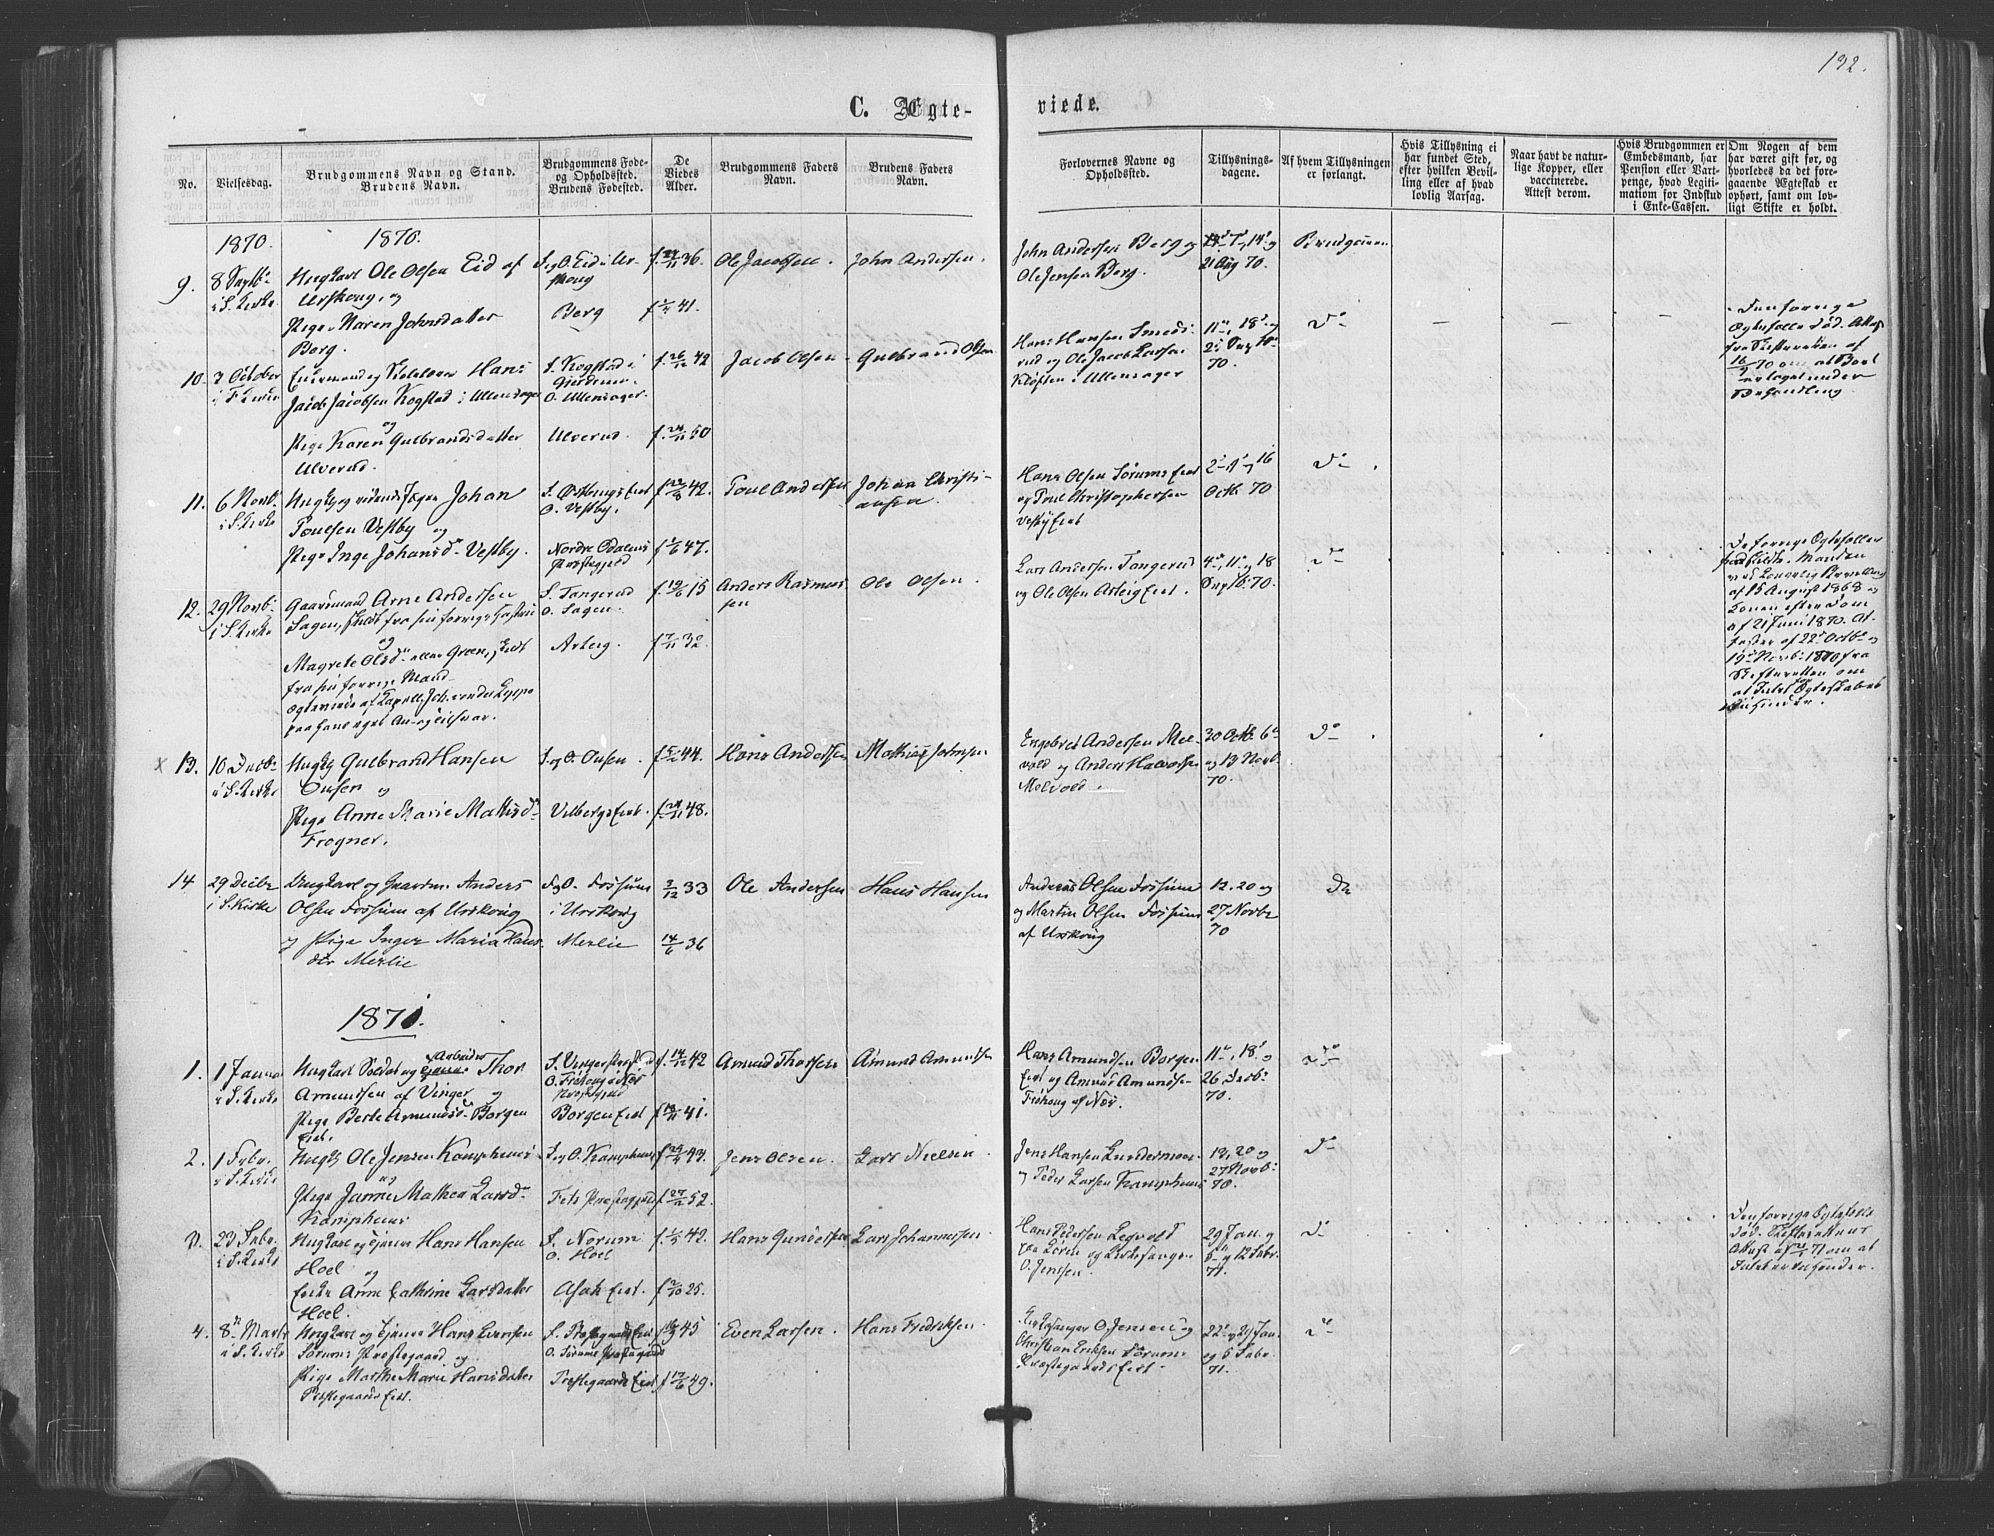 192.
C. Ægte-
viede.
No.
Vielsesdag.
Brudgommens Navn og Stand.
Brudens Navn.
Brudgommens Føde-
og Opholdssted.
Brudens Fødested.
De
Viedes
Alder.
Brudgommens Faders
Navn.
Brudens Faders
Navn.
Forlovernes Navne og
Opholdssted.
Tillysnings-
dagene.
Af hvem Tillysningen
er forlangt.
Hvis Tillysning ei
har fundet Sted,
efter hvilken Bevil-
ling eller af hvad
lovlig Aarsag.
Naar havt de natur-
lige Kopper, eller
vaccinerede.
Attest derom.
Hvis Brudgommen er
Embedsmand, har
Pension eller Vart-
penge, hvad Legiti-
mation for Indskud
i Enke-Cassen.
Om Nogen af dem
har været gift før, og
hvorledes da det fore-
gaaende Ægteskab er
ophørt, samt om lov-
ligt Skifte er holdt.
1870.
1870.
9.
8 Septbr
i S. Kirke
Ungkarl Ole Olsen Eid af
Urskoug, og
Pige Maren Johnsdatter
Berg.
F. og O. Eid i Ur-
skoug
Berg
36.
41.
Ole Jacobsen.
John Andersen.
John Andersen Berg og
Ole Jensen Berg.
21 Aug 70.
Brudgommen
10.
2 October
i F. Kirke
Enkemand og Hans
Jacob Jacobsen Kogstad i Ullensager
og
Pige Karen Gulbrandsdatter
Ulverud.
F. Kogstad i
Gjerdrum.
O. Ullensager.
Ulverud.
42
50
Jacob Olsen
Gulbrand Olsen
Hans Hansen Smeds-
rud og Ole Jacob Larsen
Kløften i Ullensager
11te, 18de og
70.
Do
Den forrige
Ægtefælle død. Attest
fra Skifteretten af
16/9 70 om at Boet
er taget under
Behandling
11.
6 Novb.
i S. Kirke
Johan
Poulsen Vestby og
Pige Inge Johansdr Vestby.
F. Østbyes Eiet
O. Vestby.
Nordre Odalens
Præstegjeld
42.
47.
Poul Andersen
Johan Christi-
ansen
Hans Olsen Sørums Eiet
og Poul Christophersen
Vestby Eiet
2, 9 og 16
Octb. 70
Do
12.
29 Novb.
i S. Kirke
Gaardmand Arne Andersen
Sagen, skilt fra sin forrige Hustru
og
Magrete Olsdr eller Green, skilt
fra sin forrige Mand
F. Tangerud
O. Sagen.
Arteig.
15
32
Anders Rasmus-
sen
Ole Olsen
Lars Andersen Tangerud
og Ole Olsen Arteig Eiet.
4de, 11te, 18
Septb. 70.
Do
De forrige Ægtefæller
fraskildte. Manden
ved Kongelig Bevilling
af 15 August 1868 og
Konen efter Dom
af 21 Juni 1870. At-
tester af 22de Octbr og
19de Novbr 1870 fra
Skifteretten om
at Intet
13.
10 Decb.
i S. Kirke
Ungk. Gulbrand Hansen
Ousen og
Pige Anne Marie Mathisdr
Frogner.
F. og O. Ousen.
Vilbergs Eiet.
44.
48.
Hans Andersen
Mathias Johnsen
Engebret Andersen Mel-
vold og Anders Halvorsen
Melvold.
30 Octb. 6te
og 13 Novb.
70.
Do
14
29 Decbr
i S. Kirke
Ungkarl og Gaardm. Anders
Olsen Fossum af Urskoug
og Pige Inger Maria Hans-
dtr Merlie
F. og O. Fossum
i Urskoug
Merlie
2/12 33
14/6 36
Ole Andersen
Hans Hansen
Andreas Olsen Fossum
og Martin Olsen Fossum
af Urskoug
12. 20 og
27 Novbr
70
Do
1871.
1.
1 Januar
i S. Kirke
Ungkarl Soldat og Arbeider Thor
Amundsen af Vinger og
Pige Berte Amundsdr Borgen
Eiet.
F. Vinger Præstegj.
O. Friskoug i Næs
Præstegjeld
Borgen Eiet
42
41.
Amund Thorsen
Amund Amundsen
Hans Amundsen Borgen
Eiet og Amund Amundsen
Friskoug af Næs.
11te, 18de og
26. Decbr
70.
Do
2.
1 Febr.
i S. Kirke
Ungk. Ole Jensen Kamphuus
og
Pige Janne Mathea Larsdr
Kamphuus
F. og O. Kamphuus
Fets Præstegjeld
43.
52.
Jens Olsen.
Lars Nielsen
Jens Hansen Lundermoen
og Peder Larsen Kamphuus
13, 20 og
27 Novb.
70.
Do
3.
23 Febr.
i S. Kirke
Ungkarl og Tjener Hans Hansen
Hoel og
Enke Anne Cathrine Larsdatter
Hoel.
F. Norum
O. Hoel
Asak Eiet.
42.
25.
Hans Gundersen
Lars Johannesen
Hans Pedersen Legvold
og Kirkesanger
O. Jensen.
29 Jan. og
5te og 12 Febr.
71.
Do
Den forrige Ægtefælle
død. Skifterettens
Attest af 71 om at
4.
8de Marts
i S. Kirke
Ungkarl og Tjener Hans Evensen
Sørums Præstegaard og
Pige Marthe Marie Hansdatter
Præstegaards Eiet.
F. Præstegaards Eiet
O. Sørums Præstegaard
Præstegaards Eiet
45
49.
Even Larsen.
Hans Fredriksen.
Kirkesanger O. Jensen og
Christian Eriksen Sørums
Præstegaards Eiet.
22de og 29 Jan.
og 5 Febr.
71.
Do